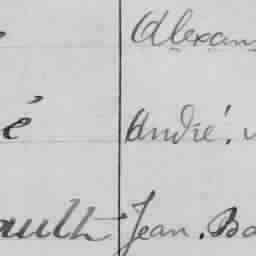 Alexan
é André.
ault Jean. Ba